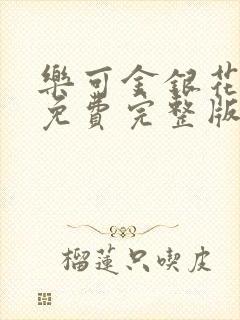 樂可金銀花
免費完整版
榴蓮只喫皮